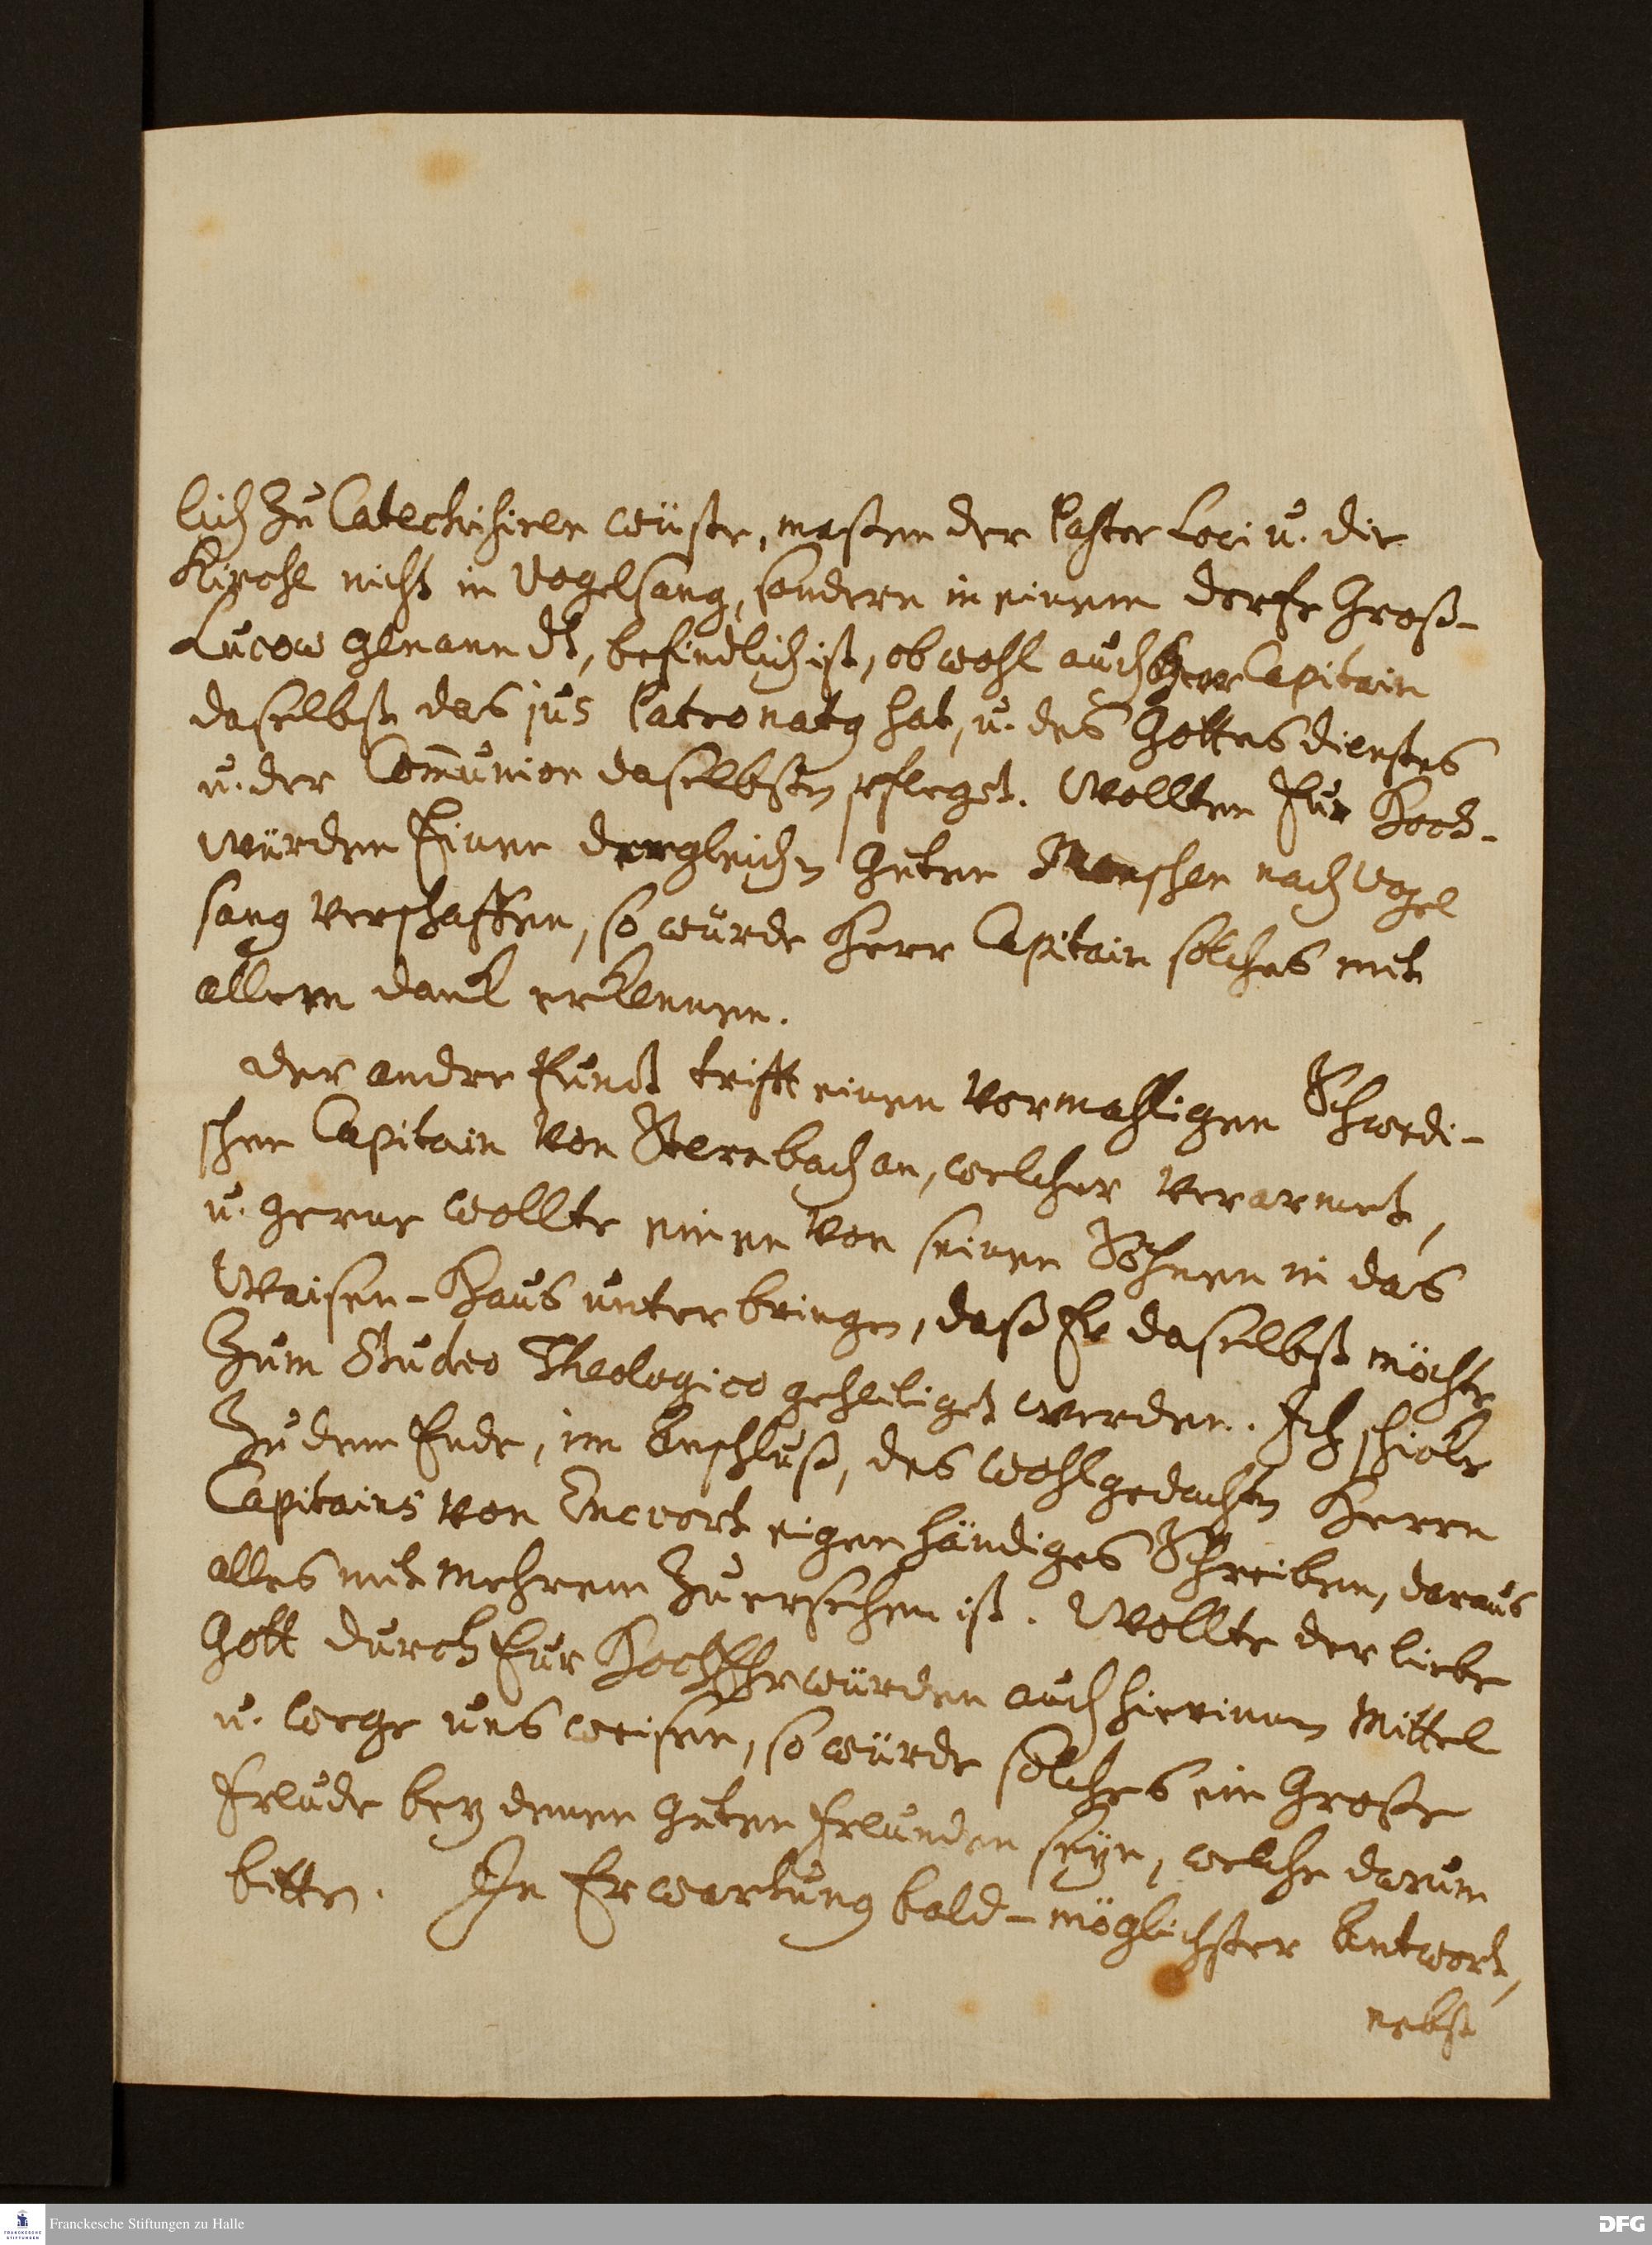 lich zu Catechisiren wüste, maßen der Pastor Loci u. die
Kirche nicht in Vogelsang, sondern in einem dorfe Groß-
Lucow genandt, befindlich ist, ob wohl auch Herr Capitain
daselbst das jus Patronatg hat, u. des Gottesdienstes
u. der Com̃union daselbsten pfleget. Wollten Eur Hoch-
würden Einen dergleichen Guten Menschen nach Vogel
sang verschaffen, so würde Herr Capitain solches mit
allem danck erkennen.
der andre Punct trifft einen vormahligen Schwedi-
schen Capitain von Sternbach an, welcher verarmet,
u. gerne wollte einen von seinen Söhnen in das
Waisen-Haus unterbringen, daß Er daselbst möchte
Zum Studio Theologico geheiliget werden. Ich schicke
Zu dem Ende, im Beschluß, des wohlgedachten Herrn
Capitains von Enckvort eigenhändiges Schreiben, daraus
alles mit mehrem Zu ersehen ist. Wollte der liebe
Gott durch Eur HochEhrwürden auch hierinnen Mittel
u. wege uns weisen, so würde solches ein Große
freude bey denen Guten freunden seyn, welche darum
bitten. In Erwartung bald-möglichster Antwort,
nebst
Franckesche Stiftungen zu Halle
DFG